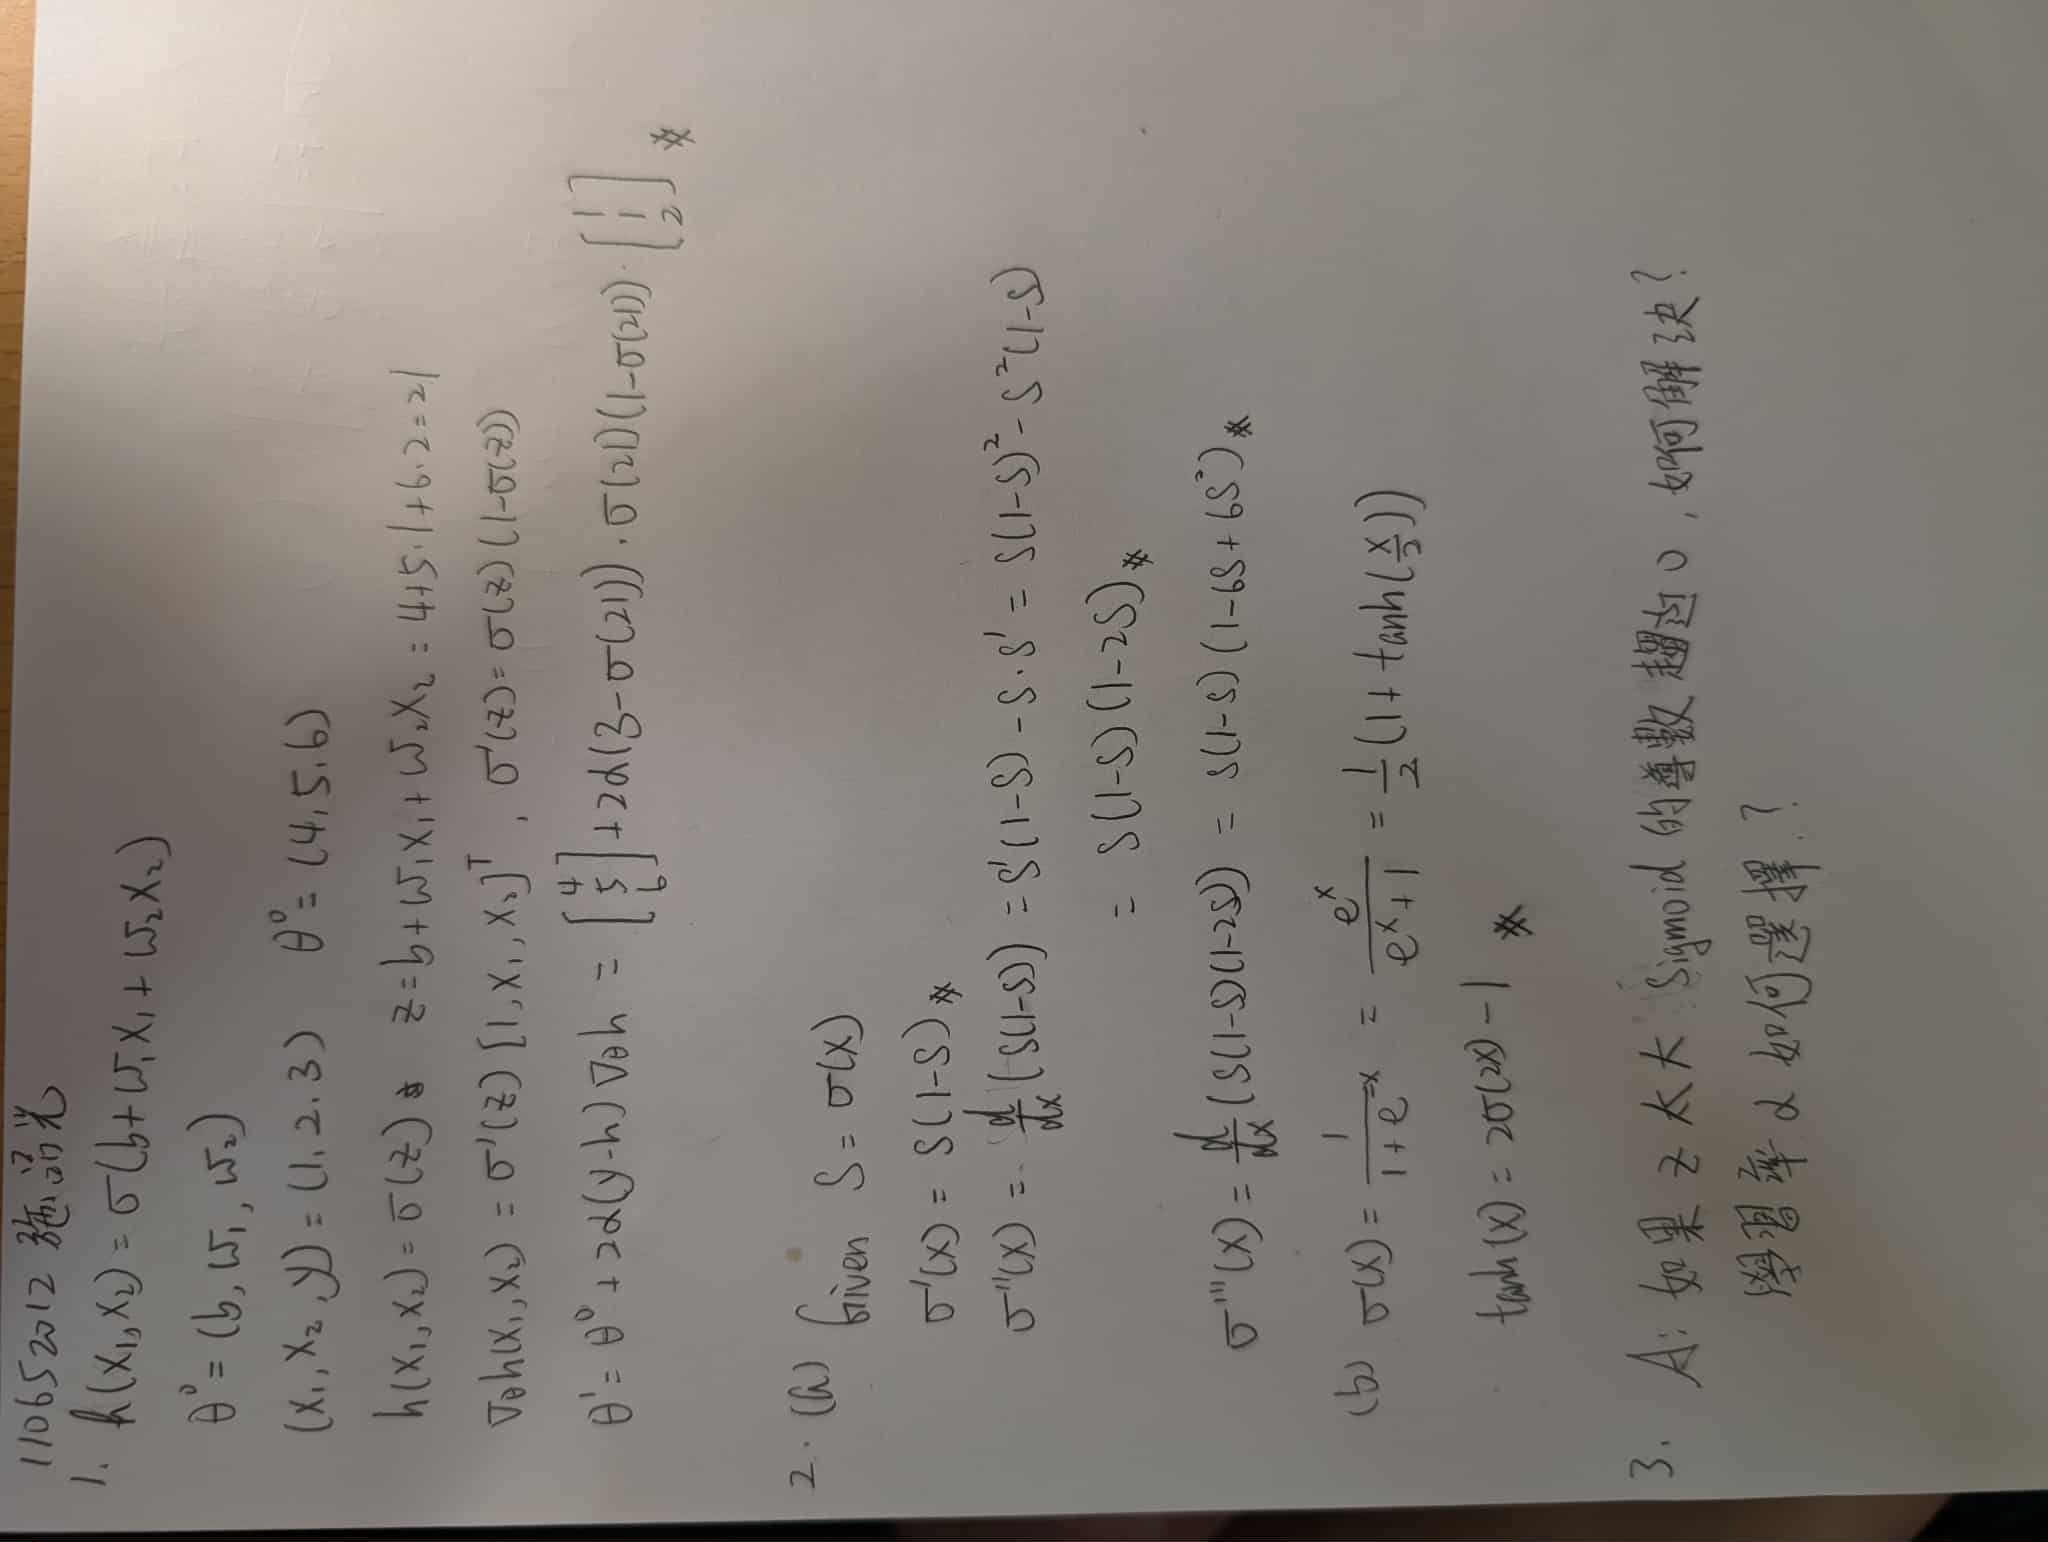 110652012 施詔光
1. h(x₁,x₂) = σ(b+w₁x₁+w₂x₂)
θ⁰ = (b, w₁, w₂)
(x₁, x₂, y) = (1, 2, 3) θ⁰ = (4, 5, 6)
h(x₁,x₂) = σ(z) z = b+w₁x₁+w₂x₂ = 4+5·1+6·2 = 21
∇θh(x₁,x₂) = σ'(z)[1, x₁, x₂]ᵀ, σ'(z) = σ(z)(1-σ(z))
θ¹ = θ⁰ + 2α(y-h)∇θh = [4 5 6] + 2α(3-σ(21))·σ(21)(1-σ(21))·[1 1 2] #
2. (a) Given S = σ(x)
σ'(x) = S(1-S) #
σ''(x) = d/dx (S(1-S)) = S'(1-S) - S·S' = S(1-S)² - S²(1-S)
= S(1-S)(1-2S) #
σ'''(x) = d/dx (S(1-S)(1-2S)) = S(1-S)(1-6S+6S²) #
(b) σ(x) = 1/(1+e⁻ˣ) = eˣ/(eˣ+1) = 1/2 (1+tanh(x/2))
tanh(x) = 2σ(2x) - 1 #
3. A: 如果 z 太大 Sigmoid 的導數趨近 0, 如何解決?
學習率 α 如何選擇?